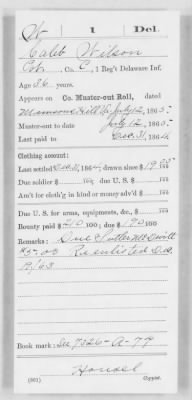 W | 1 | Del.
Caleb Wilson
Co. C, 1 Reg't Delaware Inf.
Age 36 years.
Appears on Co. Muster-out Roll, dated
Munsons Hill Va July 12, 1865.
Muster-out to date July 12, 1865.
Last paid to Dec. 31, 1864.
Clothing account:
Last settled Dec. 31, 1864; drawn since $ 19 95/100
Due soldier $ /100; due U. S. $ /100
Am't for cloth'g in kind or money adv'd $ /100
Due U. S. for arms, equipments, &c., $ /100
Bounty paid $ 210 /100; due $ 190 /100
Remarks: Due Sutler
$5.00 Re enlisted Dec.
19/63
Book mark: See 7526-A-79
Housel
(361) Copyist.